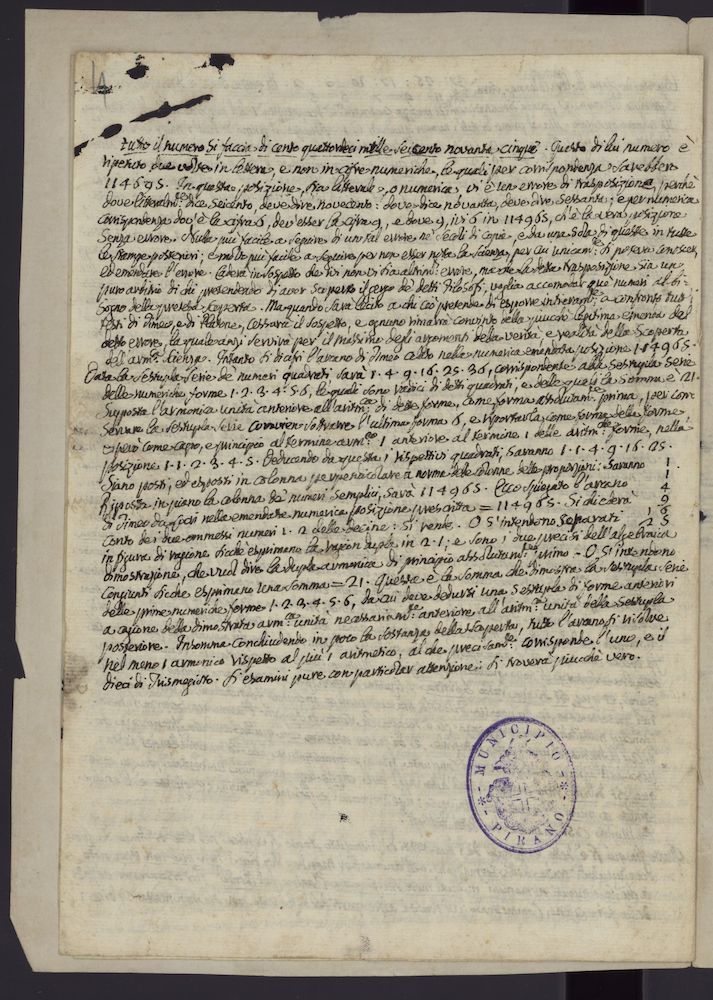 tutto il numero si faccia di cento quattordeci mille seicento novanta cinque. Questo di lui numero è
ripetuto due volte in lettere, e non in cifre numeriche, le quali per corrispondenza sarebbero
114695. In questa posizione, sia letterale, o numerica vi è un errore di trasposizione, perchè
dove litteralmte dice, seicento, deve dire, novecento: dove dice novanta, deve dire sessanta; e per numerica
corrispondenza dov'è la cifra 6, dev'esser la cifra 9, e dove 9, ivi 6 in 114965, ch'è la vera posizione
senza errore. Nulla più facile a seguire di un tal errore ne' secoli di copie, e da una sola di queste in tutte
le stampe posteriori; e molto più facile a seguire per non esser nota la scienza, per cui unicamte si poteva conoscer,
ed emendare l'errore. Caderà in sospetto che ciò non si dia altrimti errore, ma che la detta trasposizione sia un
puro arbitrio di chi pretendendo di aver scoperto il senso de' detti Filosofi, voglia accomodar que' numeri al bi-
sogno della pretesa scoperta. Ma quando sarà lecito a chi ciò pretende di esporre interamte a confronto tutti i
testi di Timeo, e di Platone, cesserà il sospetto, e ognuno rimarrà convinto della più che legitima emenda del
detto errore, la quale anzi servirà per il massimo degli argomenti della verità, e realtà della scoperta
dell'armca scienza. Intanto si dicifri l'arcano di Timeo celato nella numerica emendata posizione 114965.
Data la sestupla serie de' numeri quadrati sarà 1·4·9·16·25·36, corrispondente alla sestupla serie
delle numeriche forme 1·2·3·4·5·6, le quali sono radici di detti quadrati, e delle quali la somma è 21.
Supposta l'armonica unità anteriore all'aritmca di dette forme, come forma assolutamte prima, per con-
servare la sestupla serie converrà voltare l'ultima forma 6, e riportarla come forma delle forme
e però come capo, e principio al termine armco 1 anteriore al termine 1 delle aritmche forme, nella
posizione 1·1·2·3·4·5. Deducendo da questa i rispettivi quadrati, saranno 1·1·4·9·16·25.
Siano posti, ed esposti in colonna perpendicolare a norma delle colonne delle proporzioni: saranno 1.
1.
Riposta in piano la colonna da' numeri semplici, sarà 114965. Ecco spiegato l'arcano 4
di Timeo da Locri nella emendata numerica posizione prescritta = 114965. Si chiederà 9
conto de' due ommessi numeri 1·2 delle decine: si rende. O s'intendono separati 16
25
in figura di ragione sicche esprimano la ragion dupla in 2·1; e sono i due precisi dell'algebraica
dimostrazione, che vuol dire la dupla armonica di principio assolutamte primo - O s'intendono
congiunti sicche esprimano una somma = 21. Questa è la somma che dimostra la sestupla serie
delle prime numeriche forme 1·2·3·4·5·6, da cui deve dedursi una sestupla di forme anteriori
a cagione della dimostrata armca unità necessariamte anteriore all'aritmca unità della sestupla
posteriore. Insomma conchiudendo in poco la sostanza della scoperta, tutto l'arcano si risolve
nel meno 1 armonico rispetto al più 1 aritmetico, al che precisamte corrisponde l'uno, e il
dieci di Trismegisto. Si esamini pure con particolar attenzione: si troverà piucchè vero.
MUNICIPIO
PIRANO